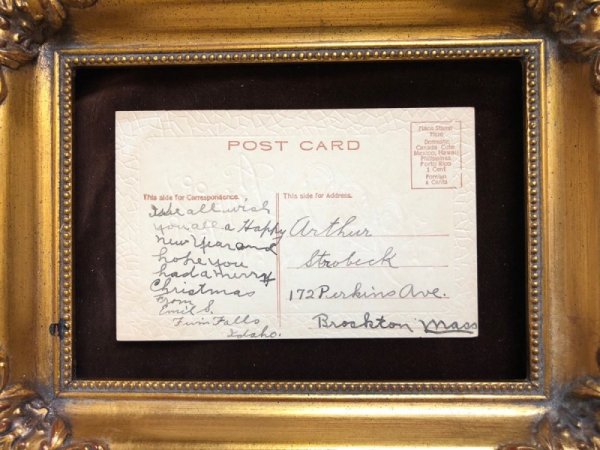 POST CARD
Place Stamp
Here
Domestic
Canada, Cuba
Mexico, Hawaii
Philippines,
Porto Rico
1 Cent
Foreign
2 Cents
This side for Correspondence.
We all wish
you all a Happy
New Year and
hope you
had a merry
Christmas
From
Emil S.
Twin Falls
Idaho.
This side for Address.
Arthur
Strobeck
172 Perkins Ave.
Brockton Mass